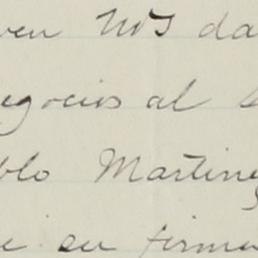 ven Nos da
egocios al
blo Martine
e su firma